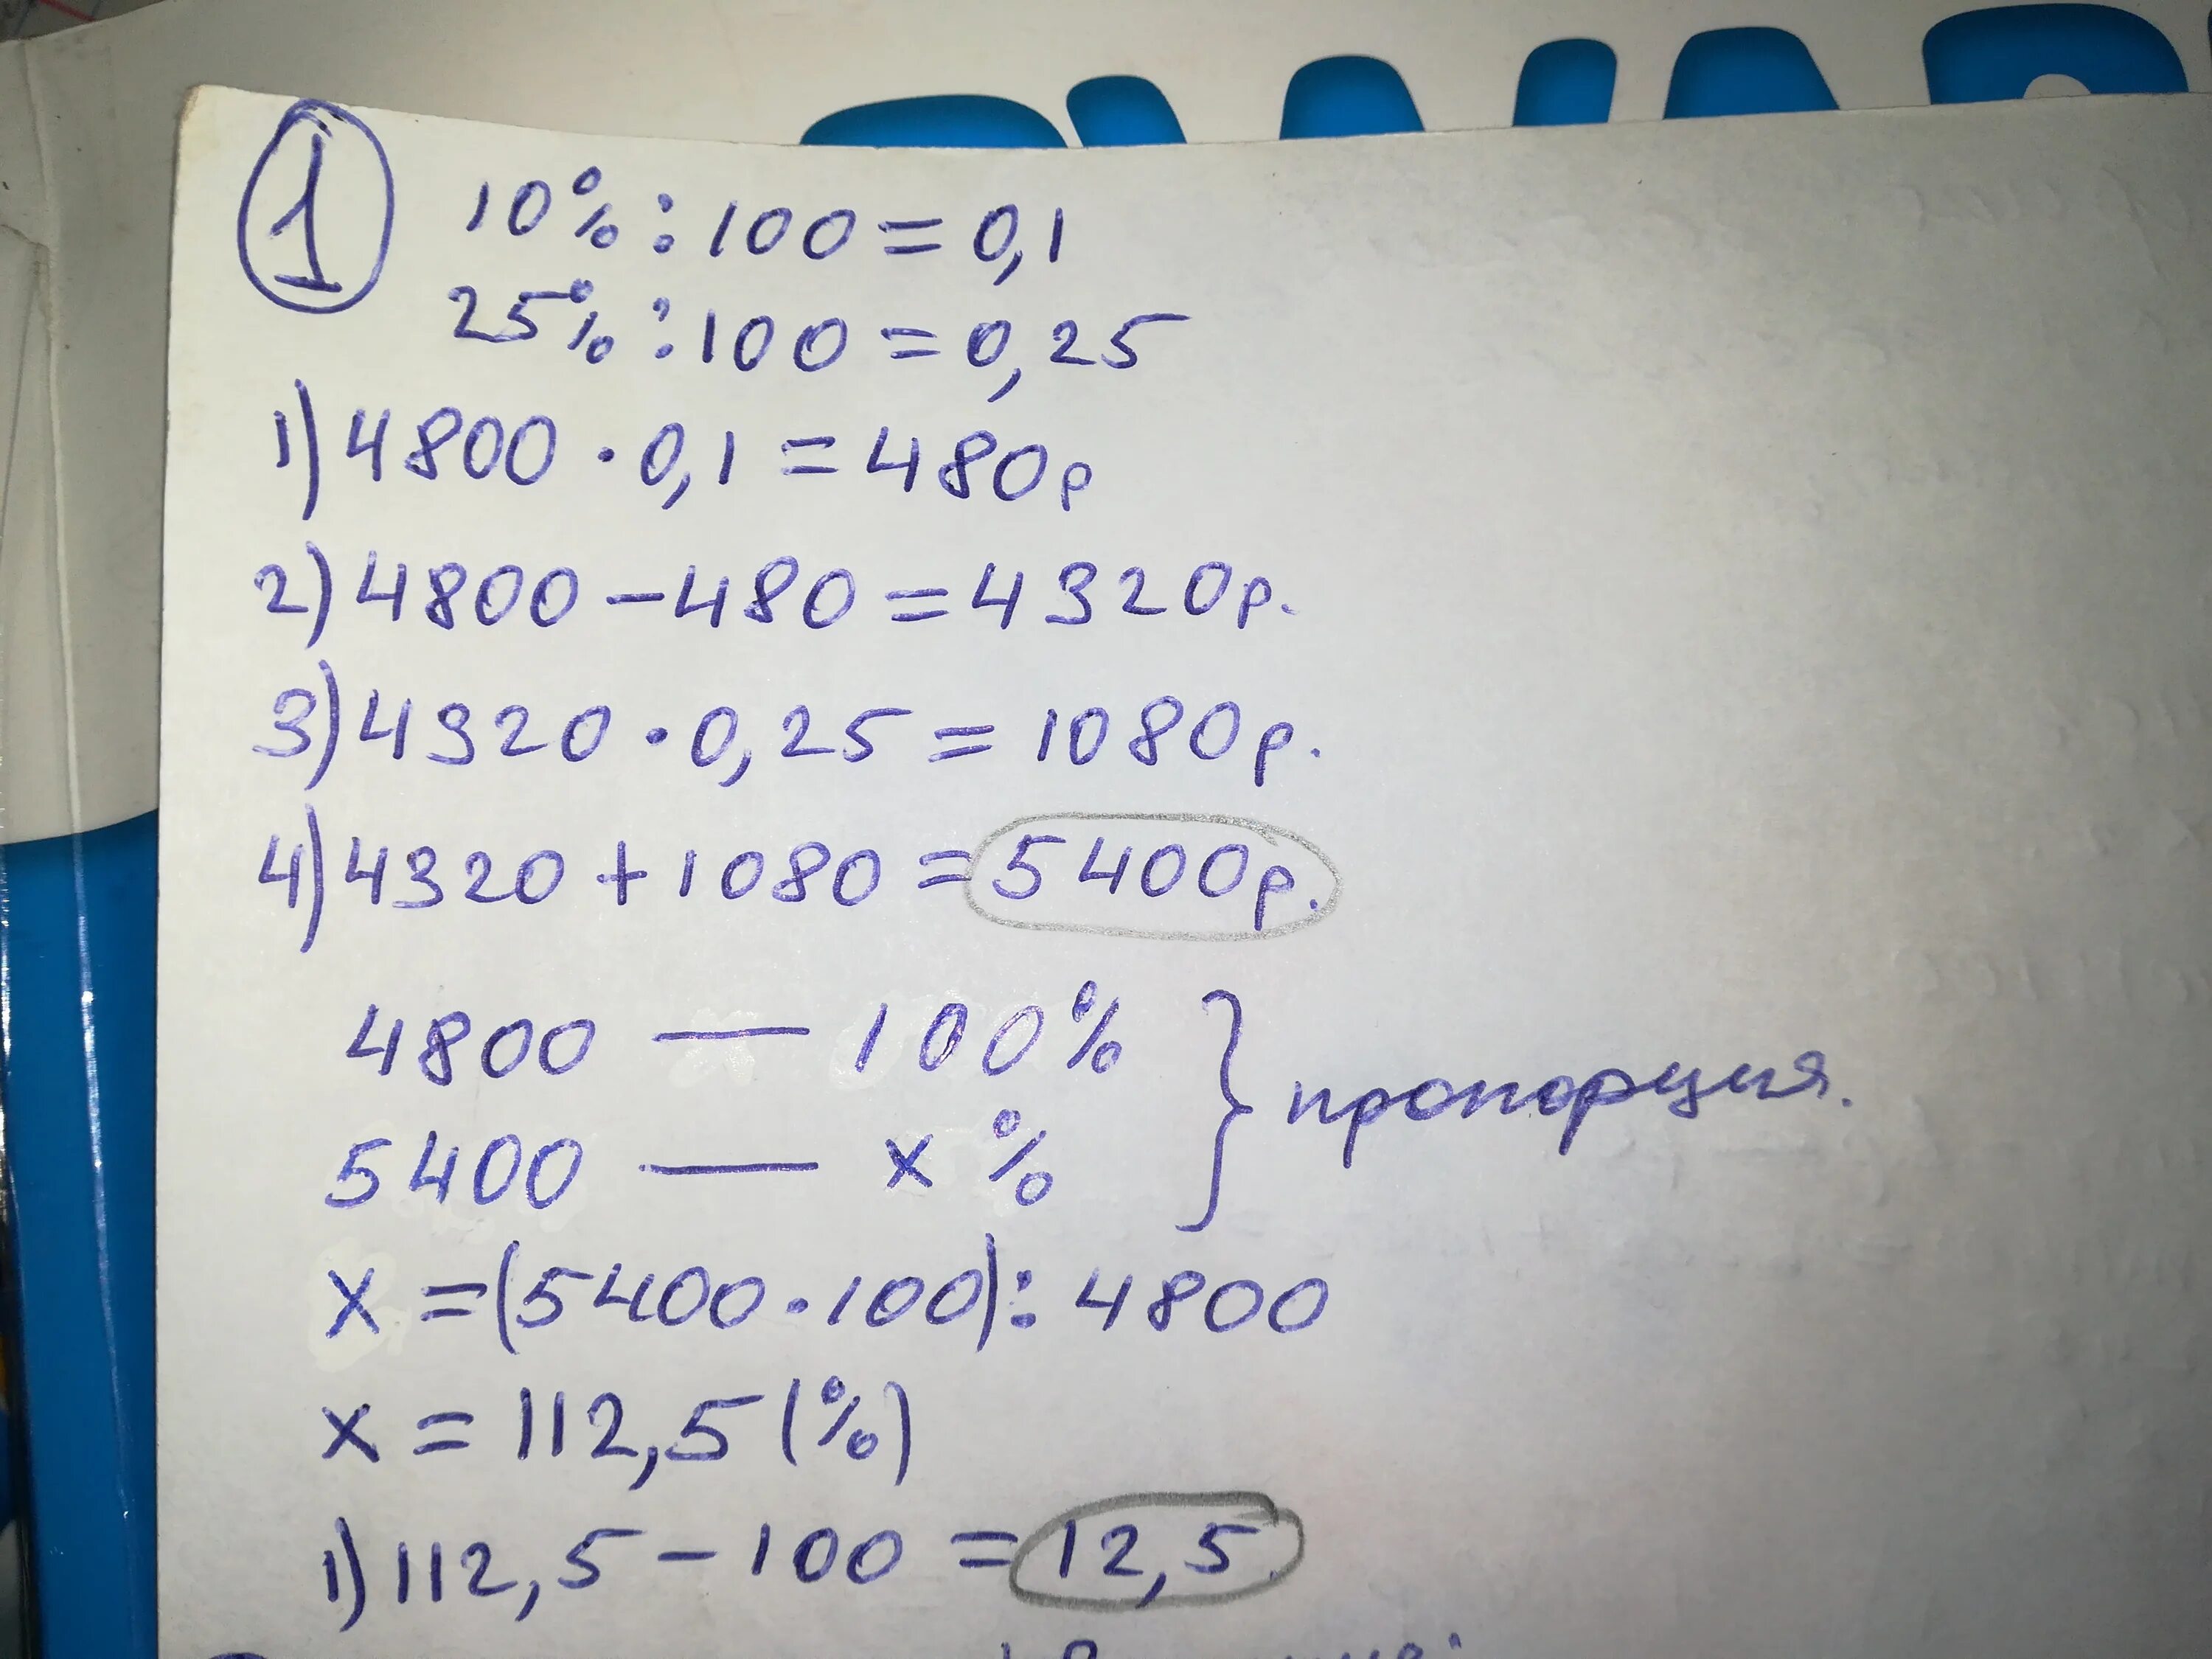 1
10% : 100 = 0,1
25% : 100 = 0,25
1) 4800 · 0,1 = 480р
2) 4800 - 480 = 4320р.
3) 4320 · 0,25 = 1080р.
4) 4320 + 1080 = 5400р.
4800 — 100%
5400 — x %
} пропорция.
x = (5400 · 100) : 4800
x = 112,5 (%)
1) 112,5 - 100 = 12,5